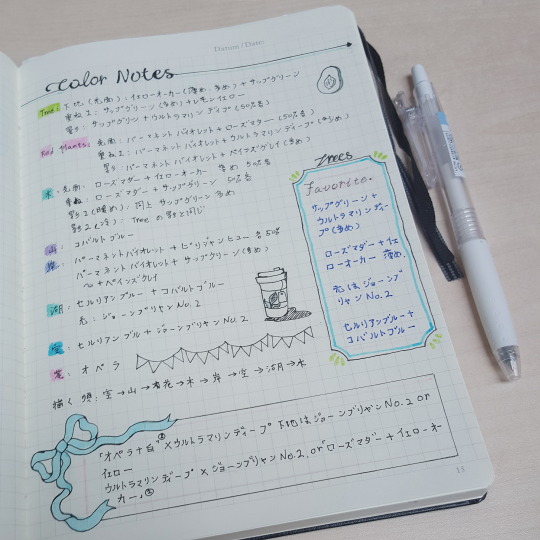 Datum / Date:
Color Notes
Tree: 下地(光面): イエローオーカー(薄め、多め) + サップグリーン
重ね1: サップグリーン(多め) + レモンイエロー
影: サップグリーン + ウルトラマリンディープ (50%含)
Red Plants: 光面: パーマネントバイオレット + ローズマダー (50%含)
重ね1: パーマネントバイオレット + ウルトラマリンディープ(多め)
影: パーマネントバイオレット + ペインズグレイ(多め)
木: 光面: ローズマダー + イエローオーカー 薄め 50%含
重ね: ローズマダー + サップグリーン 50%含
影2(暖め): 同上 サップグリーン 多め
影2(冷): Treeの影と同じ
山: コバルトブルー
岸: パーマネントバイオレット + ビリジャンヒュー 各50%
パーマネントバイオレット + サップグリーン(多め)
〜 + ペインズグレイ
湖: セルリアンブルー + コバルトブルー
光: ジョーンブリヤンNo.2
空: セルリアンブルー + ジョーンブリヤンNo.2
花: オペラ
描く順: 空→山→→木→岸→空→湖月→木
Trees
favorite.
サップグリーン +
ウルトラマリンディー
プ(多め)
ローズマダー + イエ
ローオーカー 薄め.
光はジョーンブ
リヤンNo.2
セルリアンブルー +
コバルトブルー
「オペラ+白」×ウルトラマリンディープ 下地はジョーンブリヤンNo.2 or
イエロー
ウルトラマリンディープ × ジョーンブリヤンNo.2, or「ローズマダー + イエローオー
カー」
15